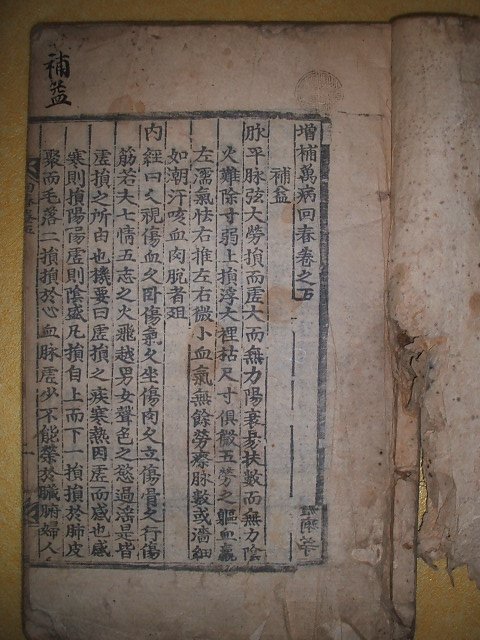 增補萬病回春卷之五
補益
脉平脉弦大勞損而虛大而無力陽衰易扶數而無力陰
火難除寸弱上損浮大裡枯尺寸俱微五勞之軀血羸
左濡氣怯右推左右微小血氣無餘勞瘵脉數或濇細
如潮汗咳血肉脱者殂
內經曰久視傷血久臥傷氣久坐傷肉久立傷骨久行傷
筋若夫七情五志之火飛越男女聲色之慾過淫是皆
虛損之所由也機要曰虛損之疾寒熱因虛而感也感
寒則損陽陽虛則陰盛凡損自上而下一損損於肺皮
聚而毛落二損損於心血脉虛少不能榮於臟腑婦人
補益